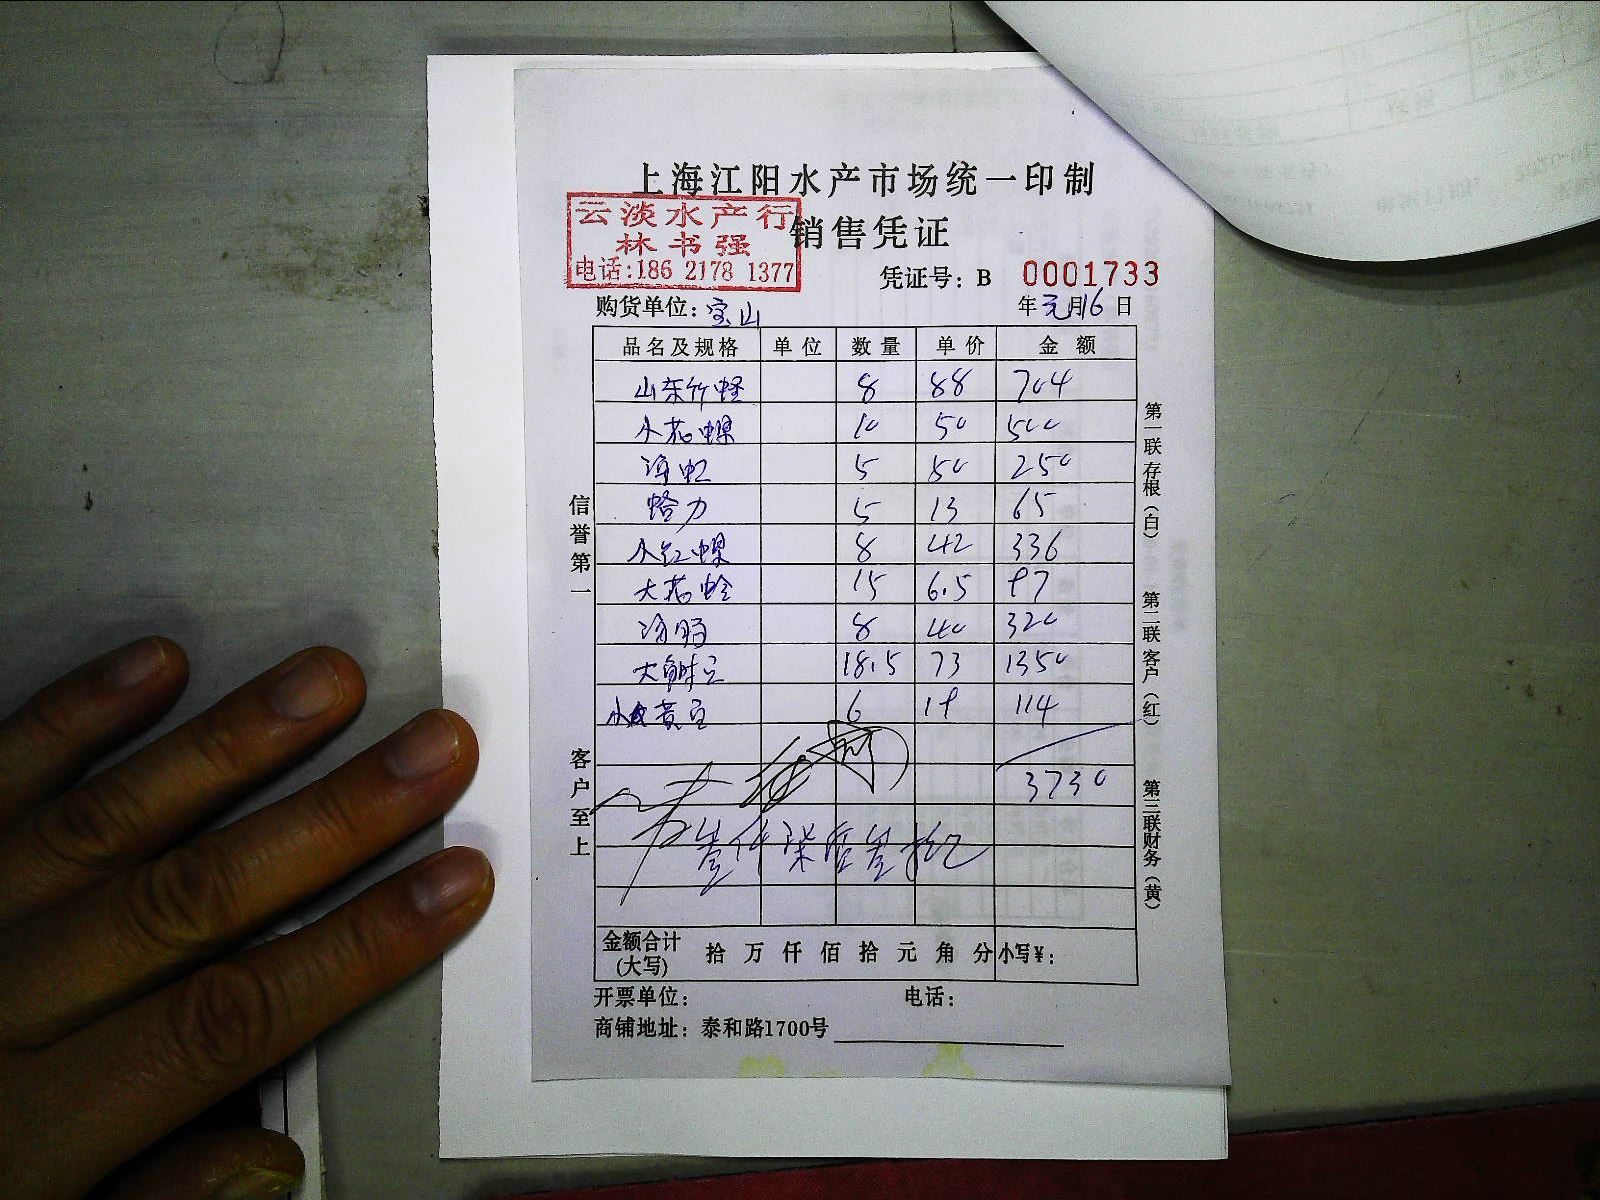 上海江阳水产市场统一印制
云淡水产行
林书强
电话:186 2178 1377
销售凭证
凭证号: B 0001733
购货单位: 宝山 年元月16日
品名及规格 单位 数量 单价 金额
山东竹蛏 8 88 704
小花螺 10 50 500
海虹 5 50 250
蛤力 5 13 65
小红螺 8 42 336
大花蛤 15 6.5 97
海肠 8 40 320
大 18.5 73 1350
小 黄 6 19 114
3730
叁仟柒佰叁拾
金额合计(大写) 拾 万 仟 佰 拾 元 角 分 小写¥:
开票单位: 电话:
商铺地址: 泰和路1700号
信誉第一
客户至上
第一联 存根(白)
第二联 客户(红)
第三联 财务(黄)